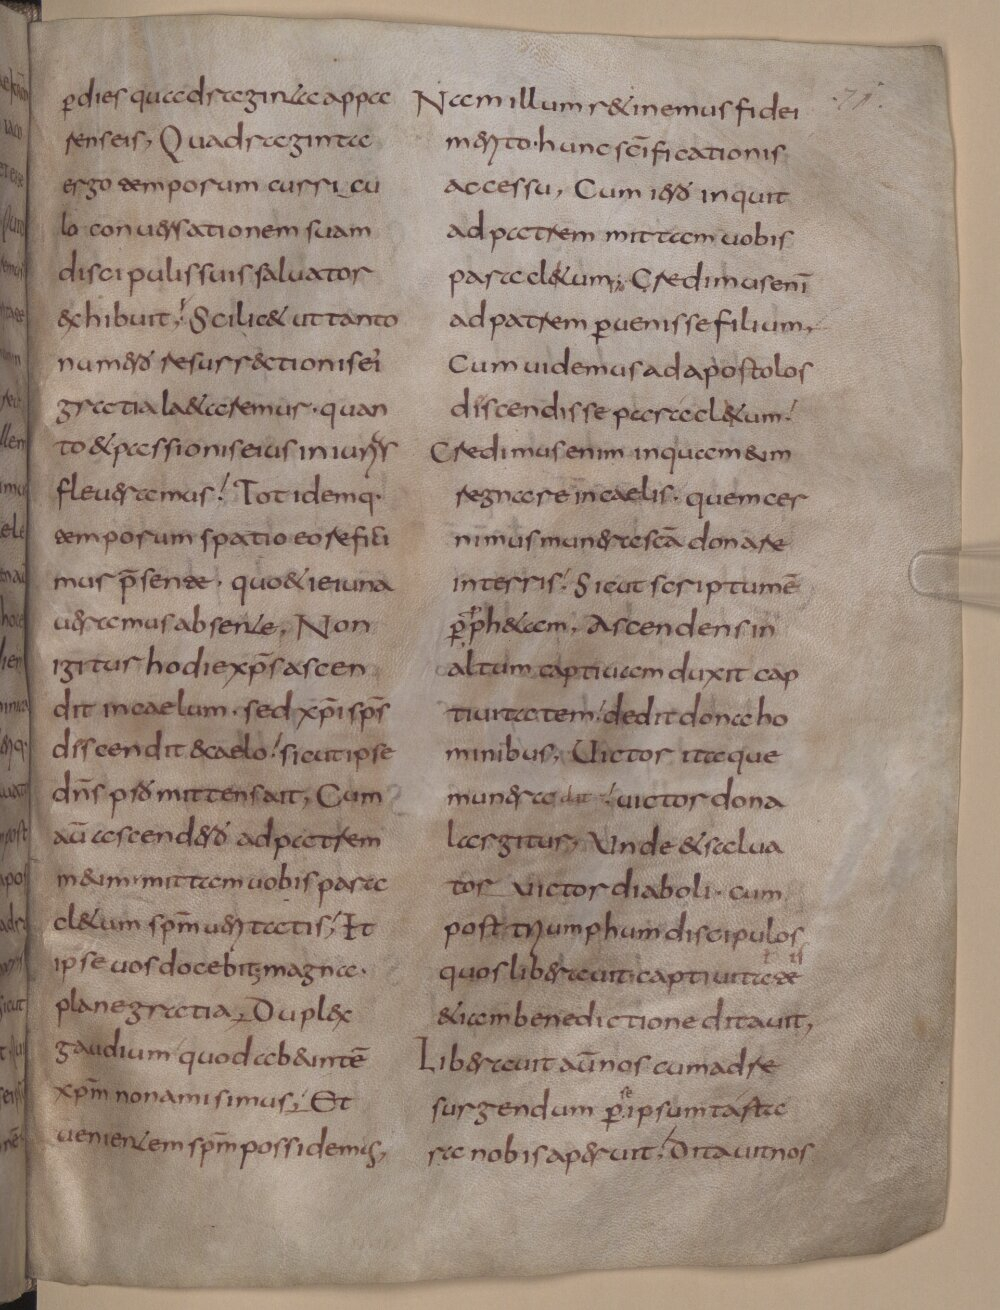 p̱dies quadraginta appa
renseis, Quadraginta
ergo temporum curri cu
lo conuersationem suam
discipulis suis saluator
exhibuit; Scilic& ut tanto
numero resurrectionis ei
gratia la&aremur · quan
to & passionis eius iniurys
fleueramus; Totidemq·
temporum spatio eo refici
mur p̄sente · quo & ieiuna
ueramus absente, Non
igitur hodie xp̄s ascen
dit in caelum · sed xp̄i sp̄s
discendit & caelo; sicut ipse
dn̄s p̱ro mittens ait, Cum
au̅ ascendero ad patrem
m&im · mittam uobis para
cl&um sp̄m ueritatis; Et
ipse uos docebit; magna ·
plane gratia, Duplex
gaudium quod ab&intē
xp̄m non amisimus; Et
uenientem sp̄m possidemus,
Nam illum r&inemus fidei
merito · hunc sc̄ificationis
accessu, Cum iero inquit
ad patrem mittam uobis
paracl&um; Credimus enī
ad patrem p̱uenisse filium,
Cum uidemus ad apostolos
discendisse paracl&um;
Credimus enim inquam &im
regnare in caelis · quem cer
nimus munera sc̄a donare
in terris; Sicut scriptum ē
p̱ proph&am, Ascendens in
altum captiuam duxit cap
tiuitatem; dedit dona ho
minibus, Uictor itaque
munera dat; uictor dona
largitur, Unde & salua
tor uictor diaboli · cum
post tryumphum discipulos
quos liberauit captiuitate
&iam benedictione ditauit,
Liberauit au̅ nos cum ad re
surgendum p̱ ipsum tarta
ra nobis aperuit; Ditauit nos
71.